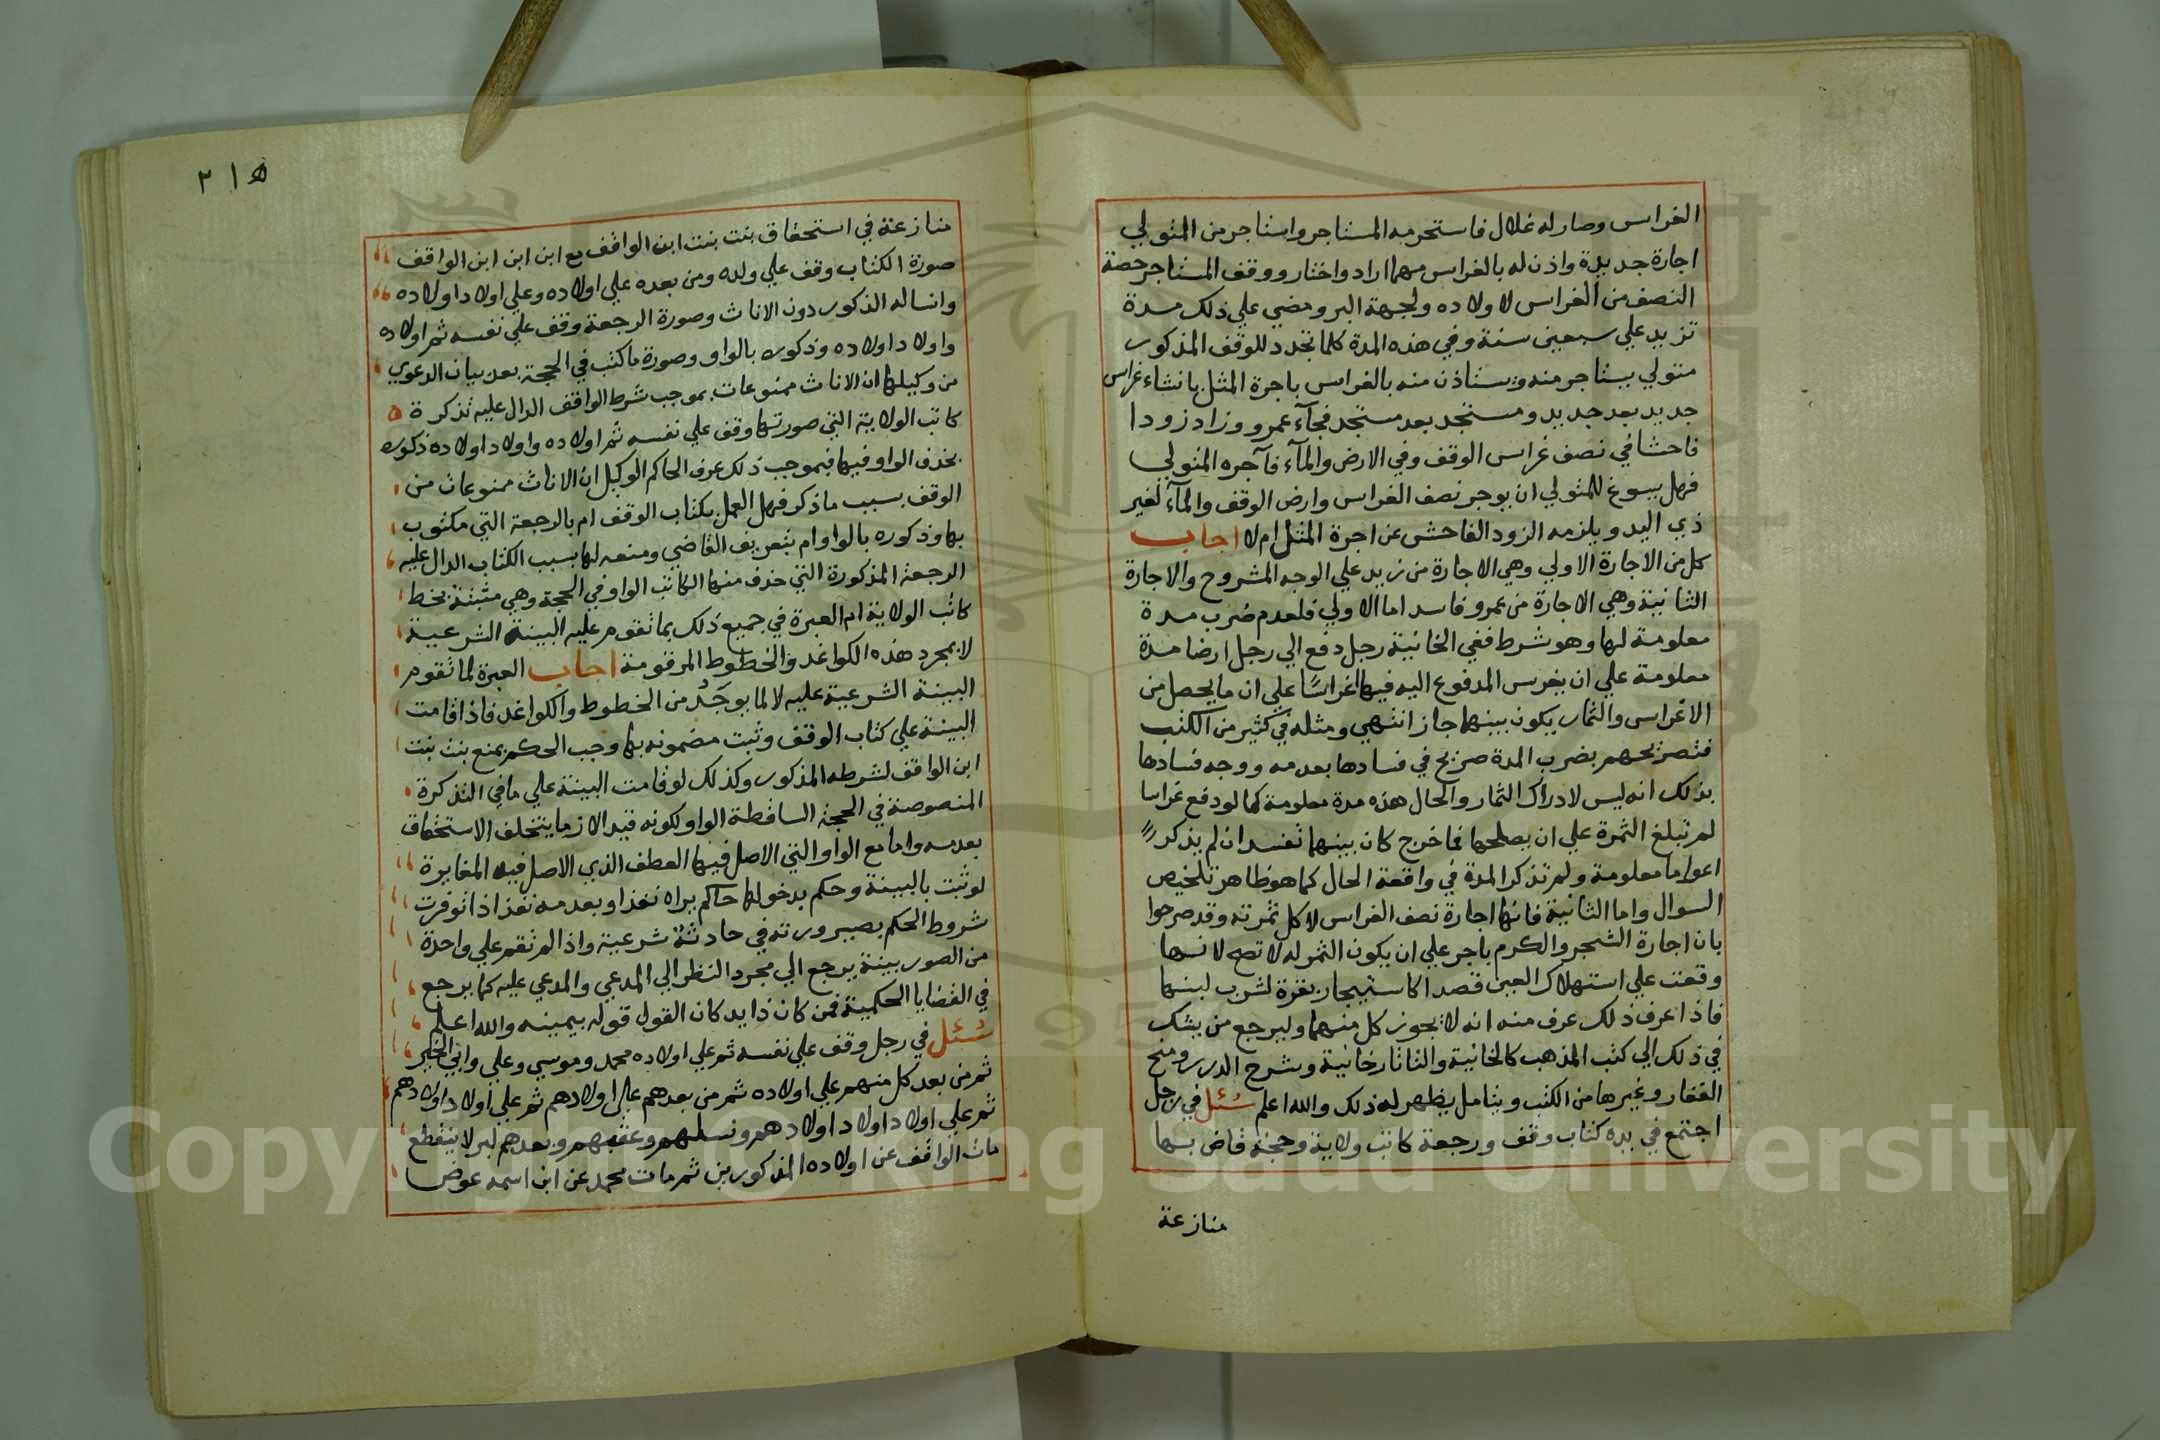 الغراس وصار له غلال فاستحرمه المستاجر واستاجر من المتولي
اجارة جديدة واذن له بالغراس مهما اراد واختار ووقف المستاجر حصة
النصف من الغراس لاولاده ولجهة البر ومضي علي ذلك مدة
تزيد علي سبعين سنة وفي هذه المدة كلما تجدد للوقف المذكور
متولي يستاجر منه ويستاذن منه بالغراس باجرة المثل بانشاء غراس
جديد بعد جديد ومستجد بعد مستجد فجآء عمرو وزاد زودا
فاحشا في نصف غراس الوقف وفي الارض والمآء فآجره المتولي
فهل يسوغ للمتولي ان يوجر نصف الغراس وارض الوقف والمآء لغير
ذي اليد ويلزمه الزود الفاحش عن اجرة المثل ام لا اجاب
كل من الاجارة الاولي وهي الاجارة من زيد علي الوجه المشروح والاجارة
الثانية وهي الاجارة من عمرو فاسد اما الاولي فلعدم ضرب مدة
معلومة لها وهو شرط ففي الخانية رجل دفع الي رجل ارضا مدة
معلومة علي ان يغرس المدفوع اليه فيها اغراسًا علي ان ما يحصل من
الاغراس والثمار يكون بينهما جاز انتهي ومثله في كثير من الكتب
فتصريحهم بضرب المدة صريح في فسادها بعدمه ووجه فسادها
بذلك انه ليس لادراك الثمار والحال هذه مدة معلومة كما لو دفع غراسا
لم تبلغ الثمرة علي ان يصلحها فما خرج كان بينهما تفسد ان لم يذكر
اعواما معلومة ولم تذكر المدة في واقعة الحال كما هو ظاهر تلخيص
السوال واما الثانية فانها اجارة نصف الغراس لاكل ثمرته وقد صرحوا
بان اجارة الشجر والكرم باجر علي ان يكون الثمر له لا تصح لانها
وقعت علي استهلاك العين قصدا كاستيجار بقرة لشرب لبنها
فاذا عرف ذلك عرف منه انه لا يجوز كل منهما وليرجع من يشك
في ذلك الي كتب المذهب كالخانية والتاتارخانية وشرح الدرر ومنح
الغفار وغيرها من الكتب ويتامل يظهر له ذلك والله اعلم سُئل في رجل
اجتمع في يده كتاب وقف ورجعة كاتب ولاية وحجة قاض بها
منازعة
٢١٥
منازعة في استحقاق بنت بنت ابن الواقف مع ابن ابن ابن الواقف
صورة الكتاب وقف علي ولده ومن بعده علي اولاده وعلي اولاد اولاده
وانساله الذكور دون الاناث وصورة الرجعة وقف علي نفسه ثم اولاده
واولاد اولاده وذكوره بالواو وصورة ما كتب في الحجة بعد بيان الدعوي
من وكيلها ان الاناث ممنوعات بموجب شرط الواقف الدال عليه تذكرة
كاتب الولاية التي صورتها وقف علي نفسه ثم اولاده واولاد اولاده ذكوره
بحذف الواو فيها فبموجب ذلك عرف الحاكم الوكيل ان الاناث ممنوعات من
الوقف بسبب ما ذكر فهل العمل بكتاب الوقف ام بالرجعة التي مكتوب
بها وذكوره بالواو ام بتعريف القاضي ومنعه لها بسبب الكتاب الدال عليه
الرجعة المذكورة التي حذف منها الكاتب الواو في الحجة وهي مثبتة بخط
كاتب الولاية ام العبرة في جميع ذلك بما تقوم عليه البينة الشرعية
لا بمجرد هذه الكواغد والخطوط المرقومة اجاب العبرة لما تقوم
البينة الشرعية عليه لا لما يوجد من الخطوط والكواغد فاذا قامت
البينة علي كتاب الوقف وثبت مضمونه بها وجب الحكم بمنع بنت بنت
ابن الواقف لشرطه المذكور وكذلك لو قامت البينة علي ما في التذكرة
المنصوصة في الحجة الساقطة الواو لكونه قيدا لازما يتخلف الاستحقاق
بعدمه واما مع الواو التي الاصل فيها العطف الذي الاصل فيه المغايرة
لو ثبت بالبينة وحكم بدخولها حاكم يراه نفذ او بعدمه نفذ اذا توفرت
شروط الحكم بصيرورته في حادثة شرعية واذا لم تقم علي واحدة
من الصور بينة يرجع الي مجرد النظر الي المدعي والمدعي عليه كما يرجع
في القضايا الحكمية فمن كان ذا يد كان القول قوله بيمينه والله اعلم
سُئل في رجل وقف علي نفسه ثم علي اولاده محمد وموسي وعلي وابي الخير
ثم من بعد كل منهم علي اولاده ثم من بعدهم علي اولادهم ثم علي اولاد اولادهم
ثم علي اولاد اولاد اولادهم ونسلهم وعقبهم وبعدهم لبر لا ينقطع
مات الواقف عن اولاده المذكورين ثم مات محمد عن ابن اسمه عوض
Copyright © King Saud University